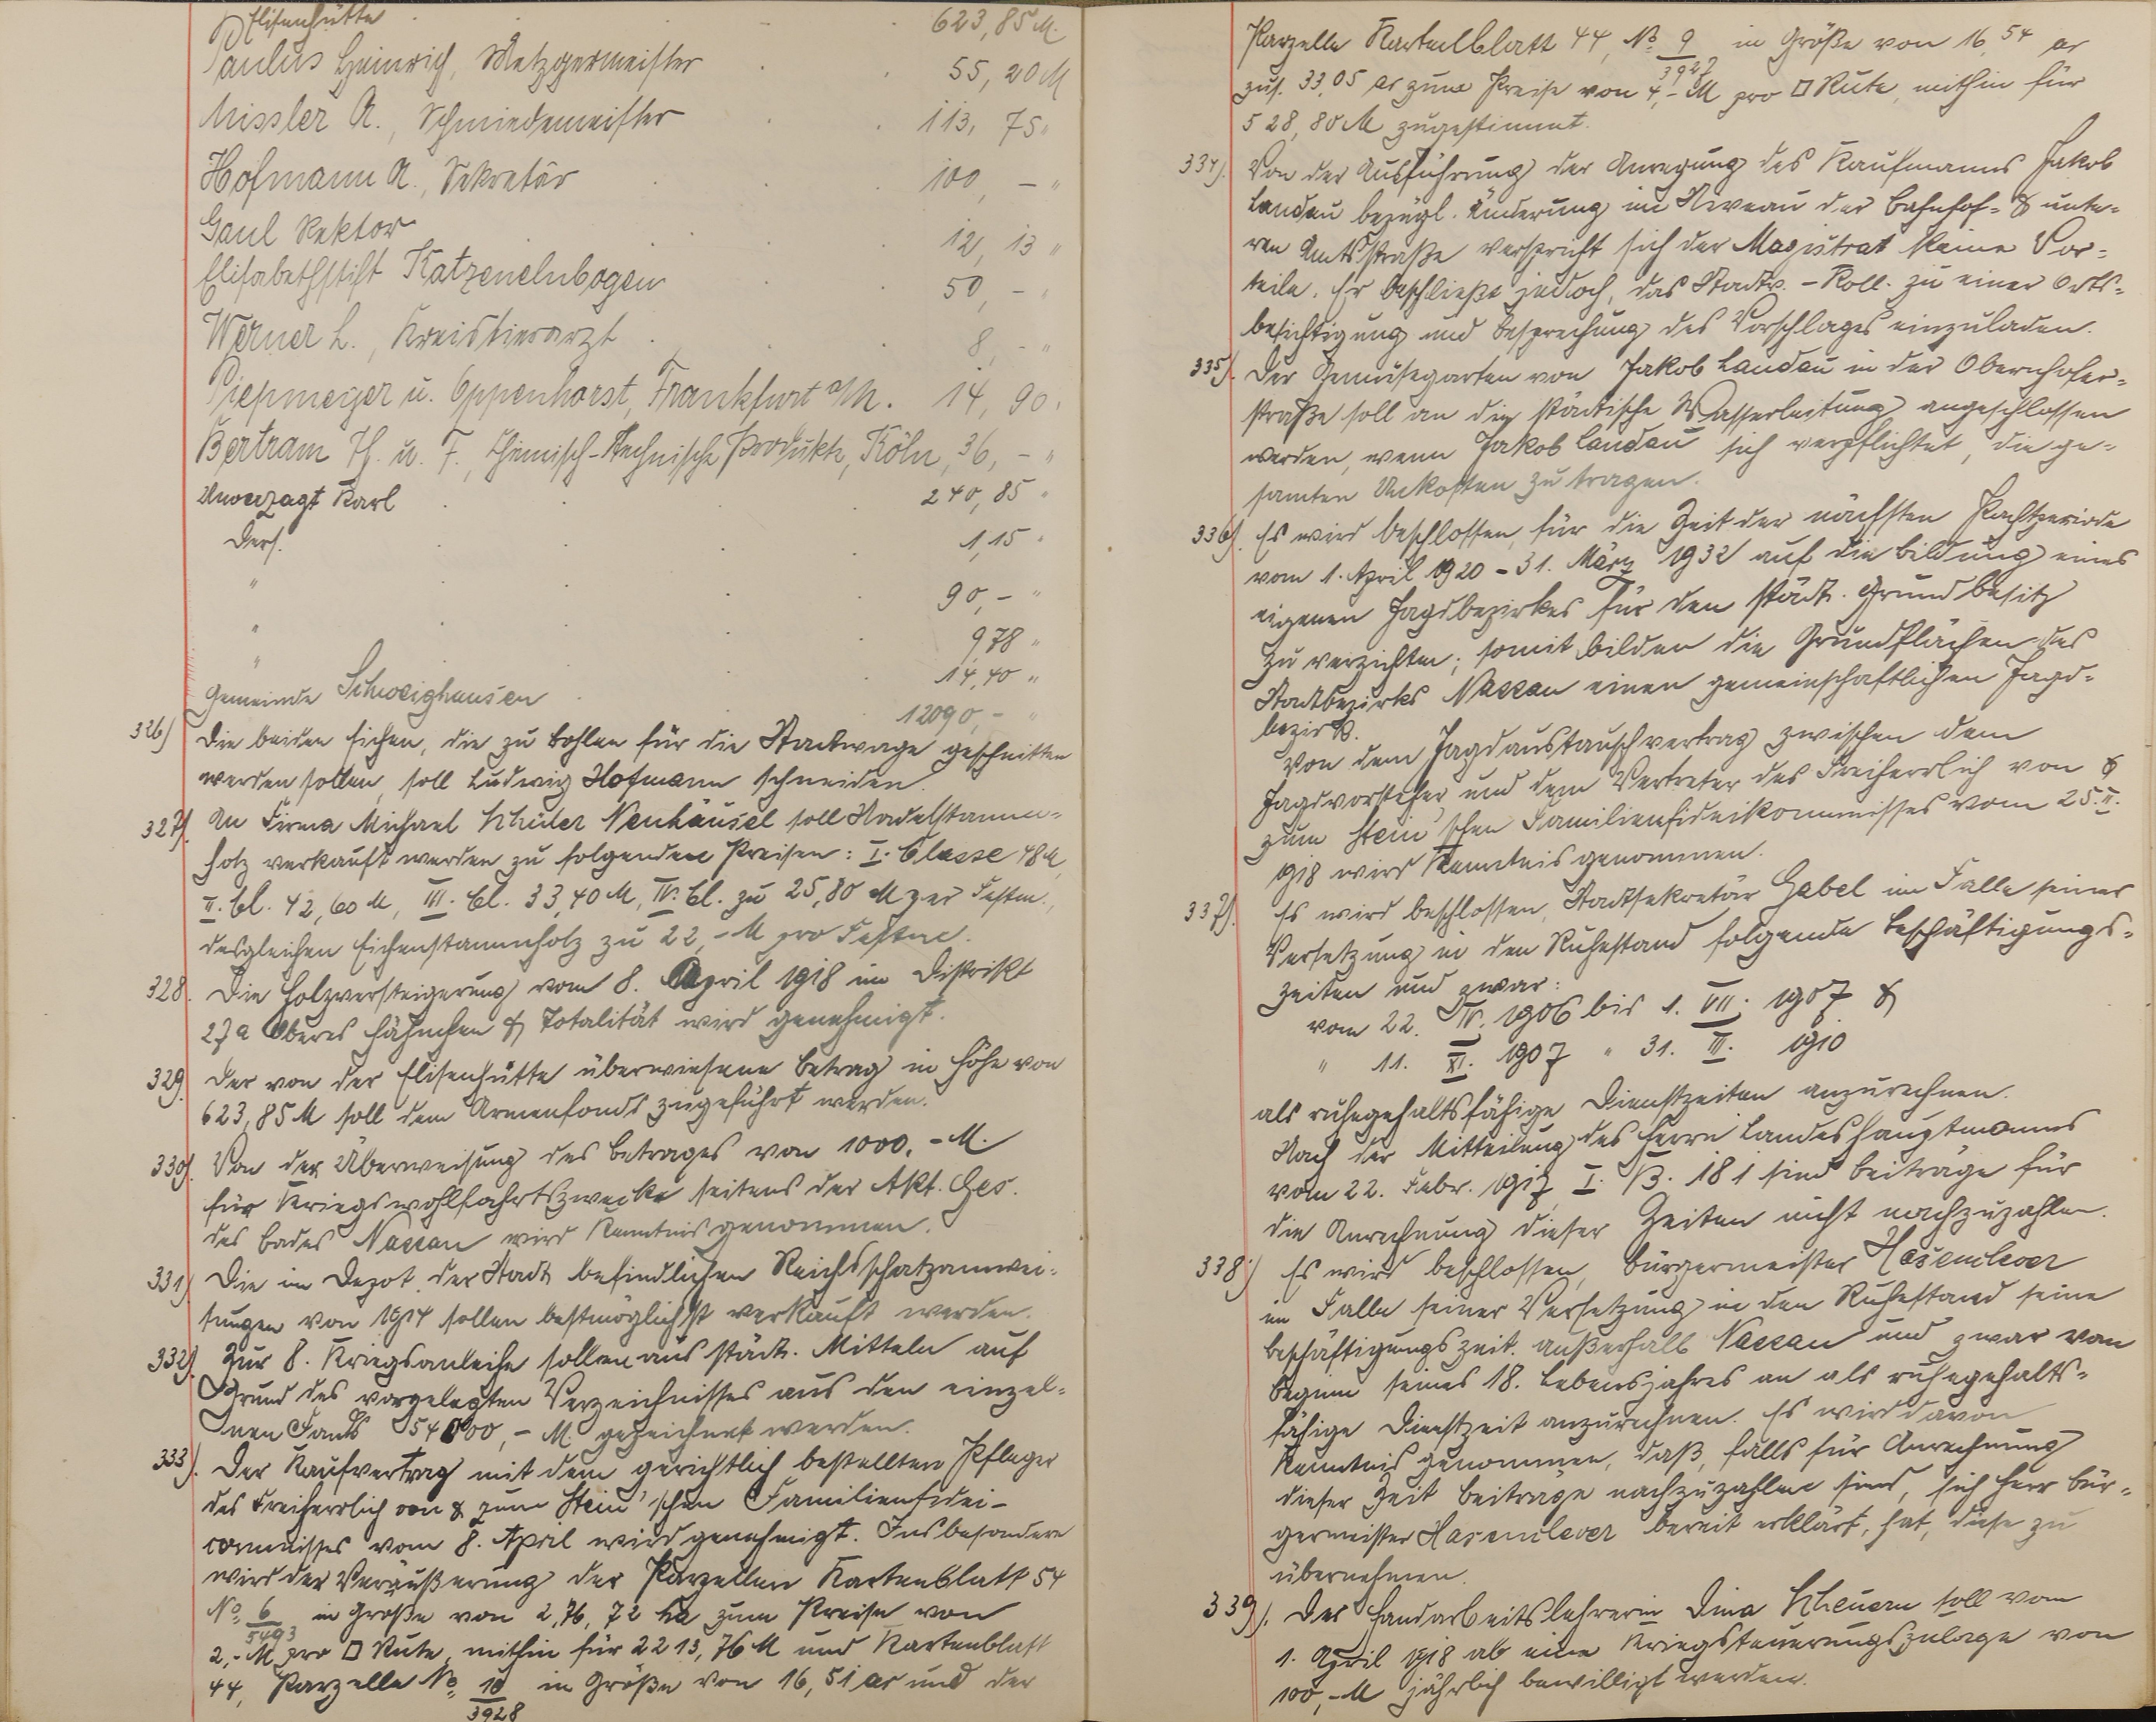 Elisenhütte 623,85 M.
Paulus Heinrich, Metzgermeister 55,20 M
Missler A., Schmiedemeister 113,75 "
Hofmann A., Sekretär 100,- "
Gaul Rektor 12,13 "
Elisabethstift Katzenelnbogen 50,- "
Werner L., Kreistierarzt 8,- "
Piepmeyer u. Oppenhorst, Frankfurt a/M. 14,90 "
Bertram Th. u. F., Chemisch-Technische Produkte, Köln, 36,- "
Unverzagt Karl 240,85 "
Ders. 1,15 "
" 90,- "
" 9,78 "
" 14,40 "
Gemeinde Schweighausen 12090,- "
326) Die beiden Eichen, die zu Bohlen für die Stadtwage geschnitten
werden sollen, soll Ludwig Hofmann schneiden.
327). An Firma Michael Neuhäusel soll Nadelstamm-
holz verkauft werden zu folgenden Preisen: I. Classe 48 M,
II. Cl. 42,60 M, III. Cl. 33,40 M, IV. Cl. zu 25,80 M per Festm.,
desgleichen Eichenstammholz zu 22,- M pro Festm.
328. Die Holzversteigerung vom 8. April 1918 im Distrikt
27a Oberes Hähnchen & Totalität wird genehmigt.
329. Der von der Elisenhütte überwiesene Betrag in Höhe von
623,85 M soll dem Armenfonds zugeführt werden.
330). Von der Überweisung des Betrages von 1000,- M.
für Kriegswohlfahrtszwecke seitens der Akt. Ges.
des Bades Nassau wird Kenntnis genommen.
331) Die im Depot der Stadt befindlichen Reichsschatzanwei-
sungen von 1914 sollen bestmöglichst verkauft werden.
332). Zur 8. Kriegsanleihe sollen aus städt. Mitteln auf
Grund des vorgelegten Verzeichnisses aus den einzel-
nen Fonds 54000,- M. gezeichnet werden.
333). Der Kaufvertrag mit dem gerichtlich bestellten Pfleger
des Freiherrlich von & zum Stein'schen Familienfidei-
commisses vom 8. April wird genehmigt. Insbesondere
wird der Veräußerung der Parzellen Kartenblatt 54
No. 6/5493 in Größe von 2,76,72 ha zum Preise von
2,- M pro □ Rute, mithin für 2213,76 M und Kartenblatt
44, Parzelle No. 10/3928 in Größe von 16,51 ar und der
Parzelle Kartenblatt 44, No. 9/3927 in Größe von 16,54 ar
zus. 33,05 ar zum Preise von 4,- M pro □ Rute, mithin für
528,80 M zugestimmt.
334). Von der Ausführung der Anregung des Kaufmanns Jakob
Landau bezügl. Änderung im Niveau der Bahnhof- & unte-
ren Amtsstraße verspricht sich der Magistrat keine Vor-
teile. Er beschließt jedoch, das Stadtv.-Koll. zu einer Orts-
besichtigung und Besprechung des Vorschlages einzuladen.
335). Der Gemüsegarten von Jakob Landau in der Obernhofer-
straße soll an die städtische Wasserleitung angeschlossen
werden, wenn Jakob Landau sich verpflichtet, die ge-
samten Unkosten zu tragen.
336). Es wird beschlossen, für die Zeit der nächsten Pachtperiode
vom 1. April 1920 - 31. März 1932 auf die Bildung eines
eigenen Jagdbezirkes für den städt. Grundbesitz
zu verzichten; somit bilden die Grundflächen des
Stadtbezirks Nassau einen gemeinschaftlichen Jagd-
bezirk.
Von dem Jagdaustauschvertrag zwischen dem
Jagdvorsteher und dem Vertreter des Freiherrlich von &
zum Stein'schen Familienfideikommisses vom 25. II.
1918 wird Kenntnis genommen.
337). Es wird beschlossen, Stadtsekretär Gabel im Falle seiner
Versetzung in den Ruhestand folgende Beschäftigungs-
zeiten und zwar:
vom 22. IV. 1906 bis 1. VII. 1907 &
" 11. XI. 1907 " 31. III. 1910
als ruhegehaltsfähige Dienstzeiten anzurechnen.
Nach der Mitteilung des Herrn Landeshauptmanns
vom 22. Febr. 1917, I. B. 181 sind Beiträge für
die Anrechnung dieser Zeiten nicht nachzuzahlen.
338.) Es wird beschlossen, Bürgermeister Hasenclever
im Falle seiner Versetzung in den Ruhestand seine
Beschäftigungszeit außerhalb Nassau und zwar vom
Beginn seines 18. Lebensjahres an als ruhegehalts-
fähige Dienstzeit anzurechnen. Es wird davon
Kenntnis genommen, daß, falls für Anrechnung
dieser Zeit Beiträge nachzuzahlen sind, sich Herr Bür-
germeister Hasenclever bereit erklärt, hat, diese zu
übernehmen.
339). Der Handarbeitslehrerin Dina Scheuern soll vom
1. April 1918 ab eine Kriegsteuerungszulage von
100,- M jährlich bewilligt werden.